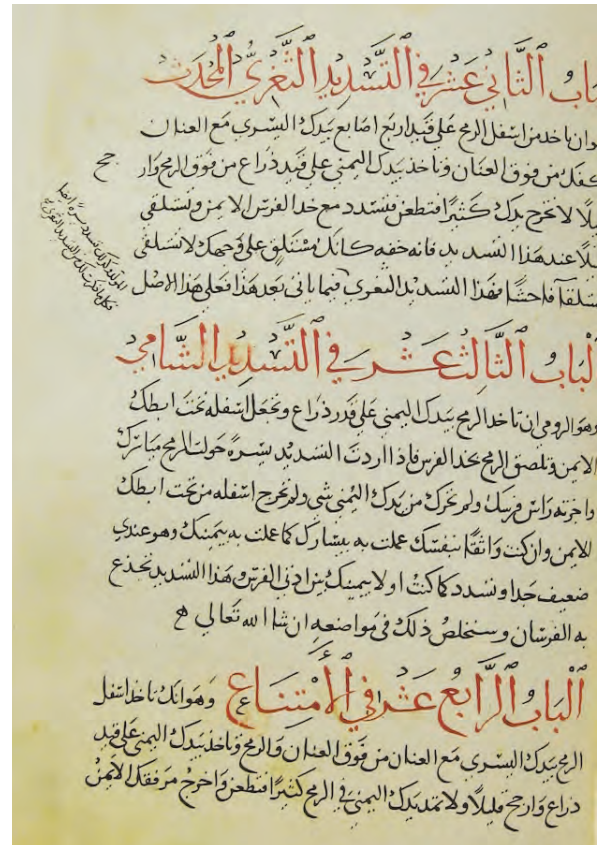 باب الثاني عشر في التسديد الثغري المحدث
وان تاخد من اسفل الرمح على قيد اربع اصابع بيدك اليسرى مع العنان
كفك من فوق العنان وتاخذ بيدك اليمنى على قيد ذراع من فوق الرمح وار
جح
يلا لا تخرج يدك كثيرا فتطعن فتسدد مع خد الفرس الايمن وتستلقى
يلا عند هذا التسديد فانه خفه كانك مستلق على وجهك لا تستلقى
ستلقا فاحشا فهذا التسديد الثغرى فيما ياتى بعد هذا فعلى هذا الاصل
لباب الثالث عشر في التسديد الشامي
وهو الرومى ان تاخد الرمح بيدك اليمنى على قدر ذراع وتجعل اسفله تحت ابطك
الايمن وتلصق الرمح بخد الفرس فاذا اردت التسديد يسرة حولت الرمح مياسرك
واجزته راس فرسك ولم تحرك من يدك اليمنى شى ولم تخرج اسفله من تحت ابطك
الايمن وان كنت واثقا بنفسك عملت به بيسارك كما عملت به بيمينك وهو عندي
ضعيف جدا وتسدد كما كنت اولا بيمينك بين اذنى الفرس وهذا التسديد تخدع
به الفرسان وستخلص ذلك في مواضعه ان شا الله تعالى ه
الباب الرابع عشر في الامتناع وهو انك تاخذ اسفل
الرمح بيدك اليسرى مع العنان من فوق العنان والرمح وتاخذ بيدك اليمنى على قيد
ذراع وارجح قليلا ولا تمد يدك اليمنى في الرمح كثيرا فتطعن واخرج مرفقك الايمن